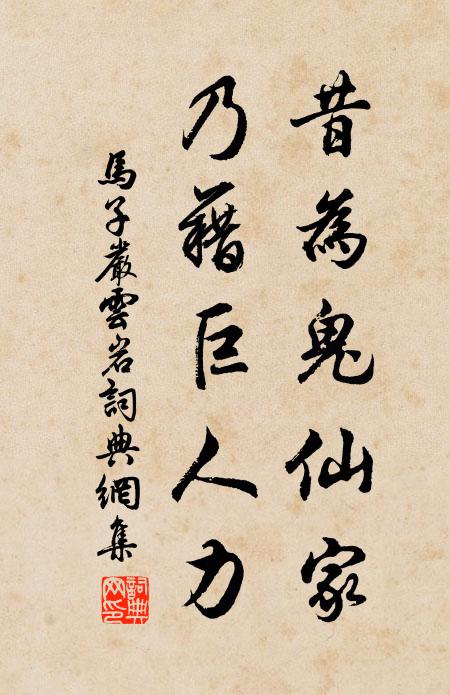 昔為鬼仙家
乃藉巨人力
馬子嚴雲岩詞典網集
詞典網印